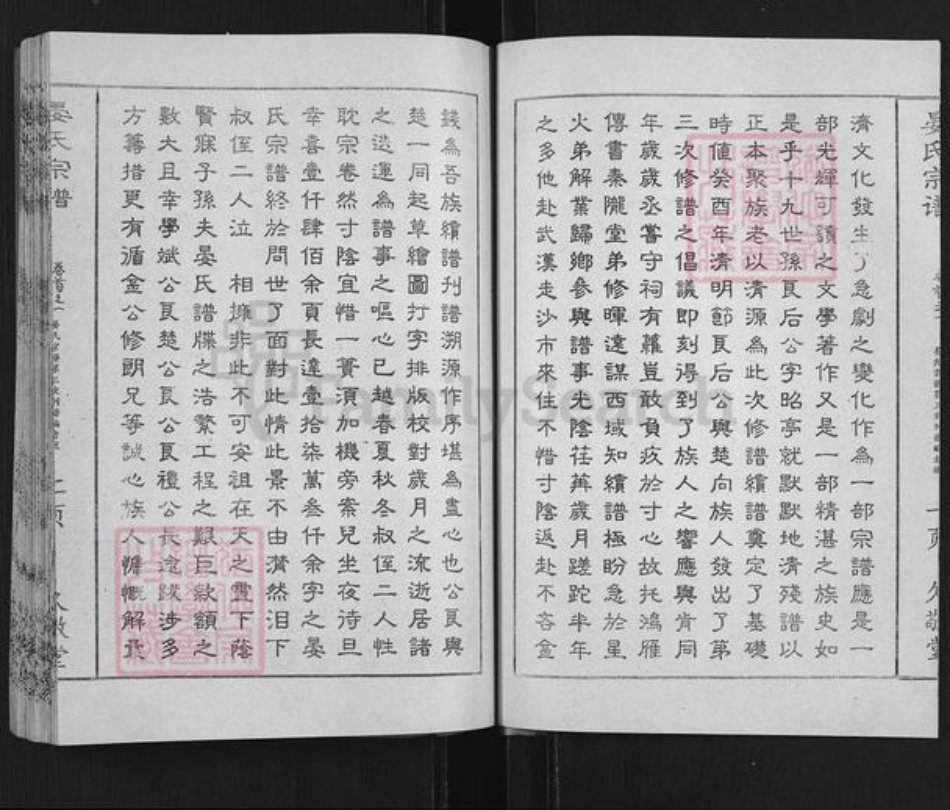 晏氏宗譜
一頁 久敬堂
濟文化發生了急劇之變化作為一部宗譜應是一
部光輝可讀之文學著作又是一部精湛之族史如
是乎十九世孫良后公字昭亭就默默地清殘譜以
正本聚族老以清源為此次修譜續譜奠定了基礎
時值癸酉年清明節良后公與楚向族人發出了第
三次修譜之倡議即刻得到了族人之響應與肯同
年歲歲丞嘗守祠有蘿豈敢負疚於寸心故托鴻雁
傳書秦隴堂弟修暉遠謀西域知續譜極盼急於星
火弟解業歸鄉參與譜事光陰荏苒歲月蹉跎半年
之多他赴武漢走沙市來往不惜寸陰返赴不吝金
錢為吾族續譜刊譜溯源作序堪為盡心也公良與
楚一同起草繪圖打字排版校對歲月之流逝居諸
之迭運為譜事之嘔心已越春夏秋冬叔侄二人性
耽宗卷然寸陰宜惜一簣須加機旁案兒坐夜待旦
幸喜壹仟肆佰余頁長達壹拾柒萬叁仟余字之晏
氏宗譜終於問世了面對此情此景不由潸然泪下
叔侄二人泣 相擁非此不可安祖在天之靈下蔭
賢寐子孫夫晏氏譜牒之浩繁工程之艱巨款額之
數大且幸學斌公良楚公良公良禮公長途跋涉多
方籌措更有循金公修朗兄等誠心族人慷慨解
晏氏宗譜
二頁 久敬堂
FamilySearch